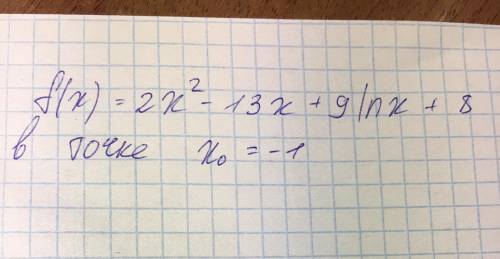 f(x) = 2x² - 13x + 9lnx + 8
в точке x₀ = -1